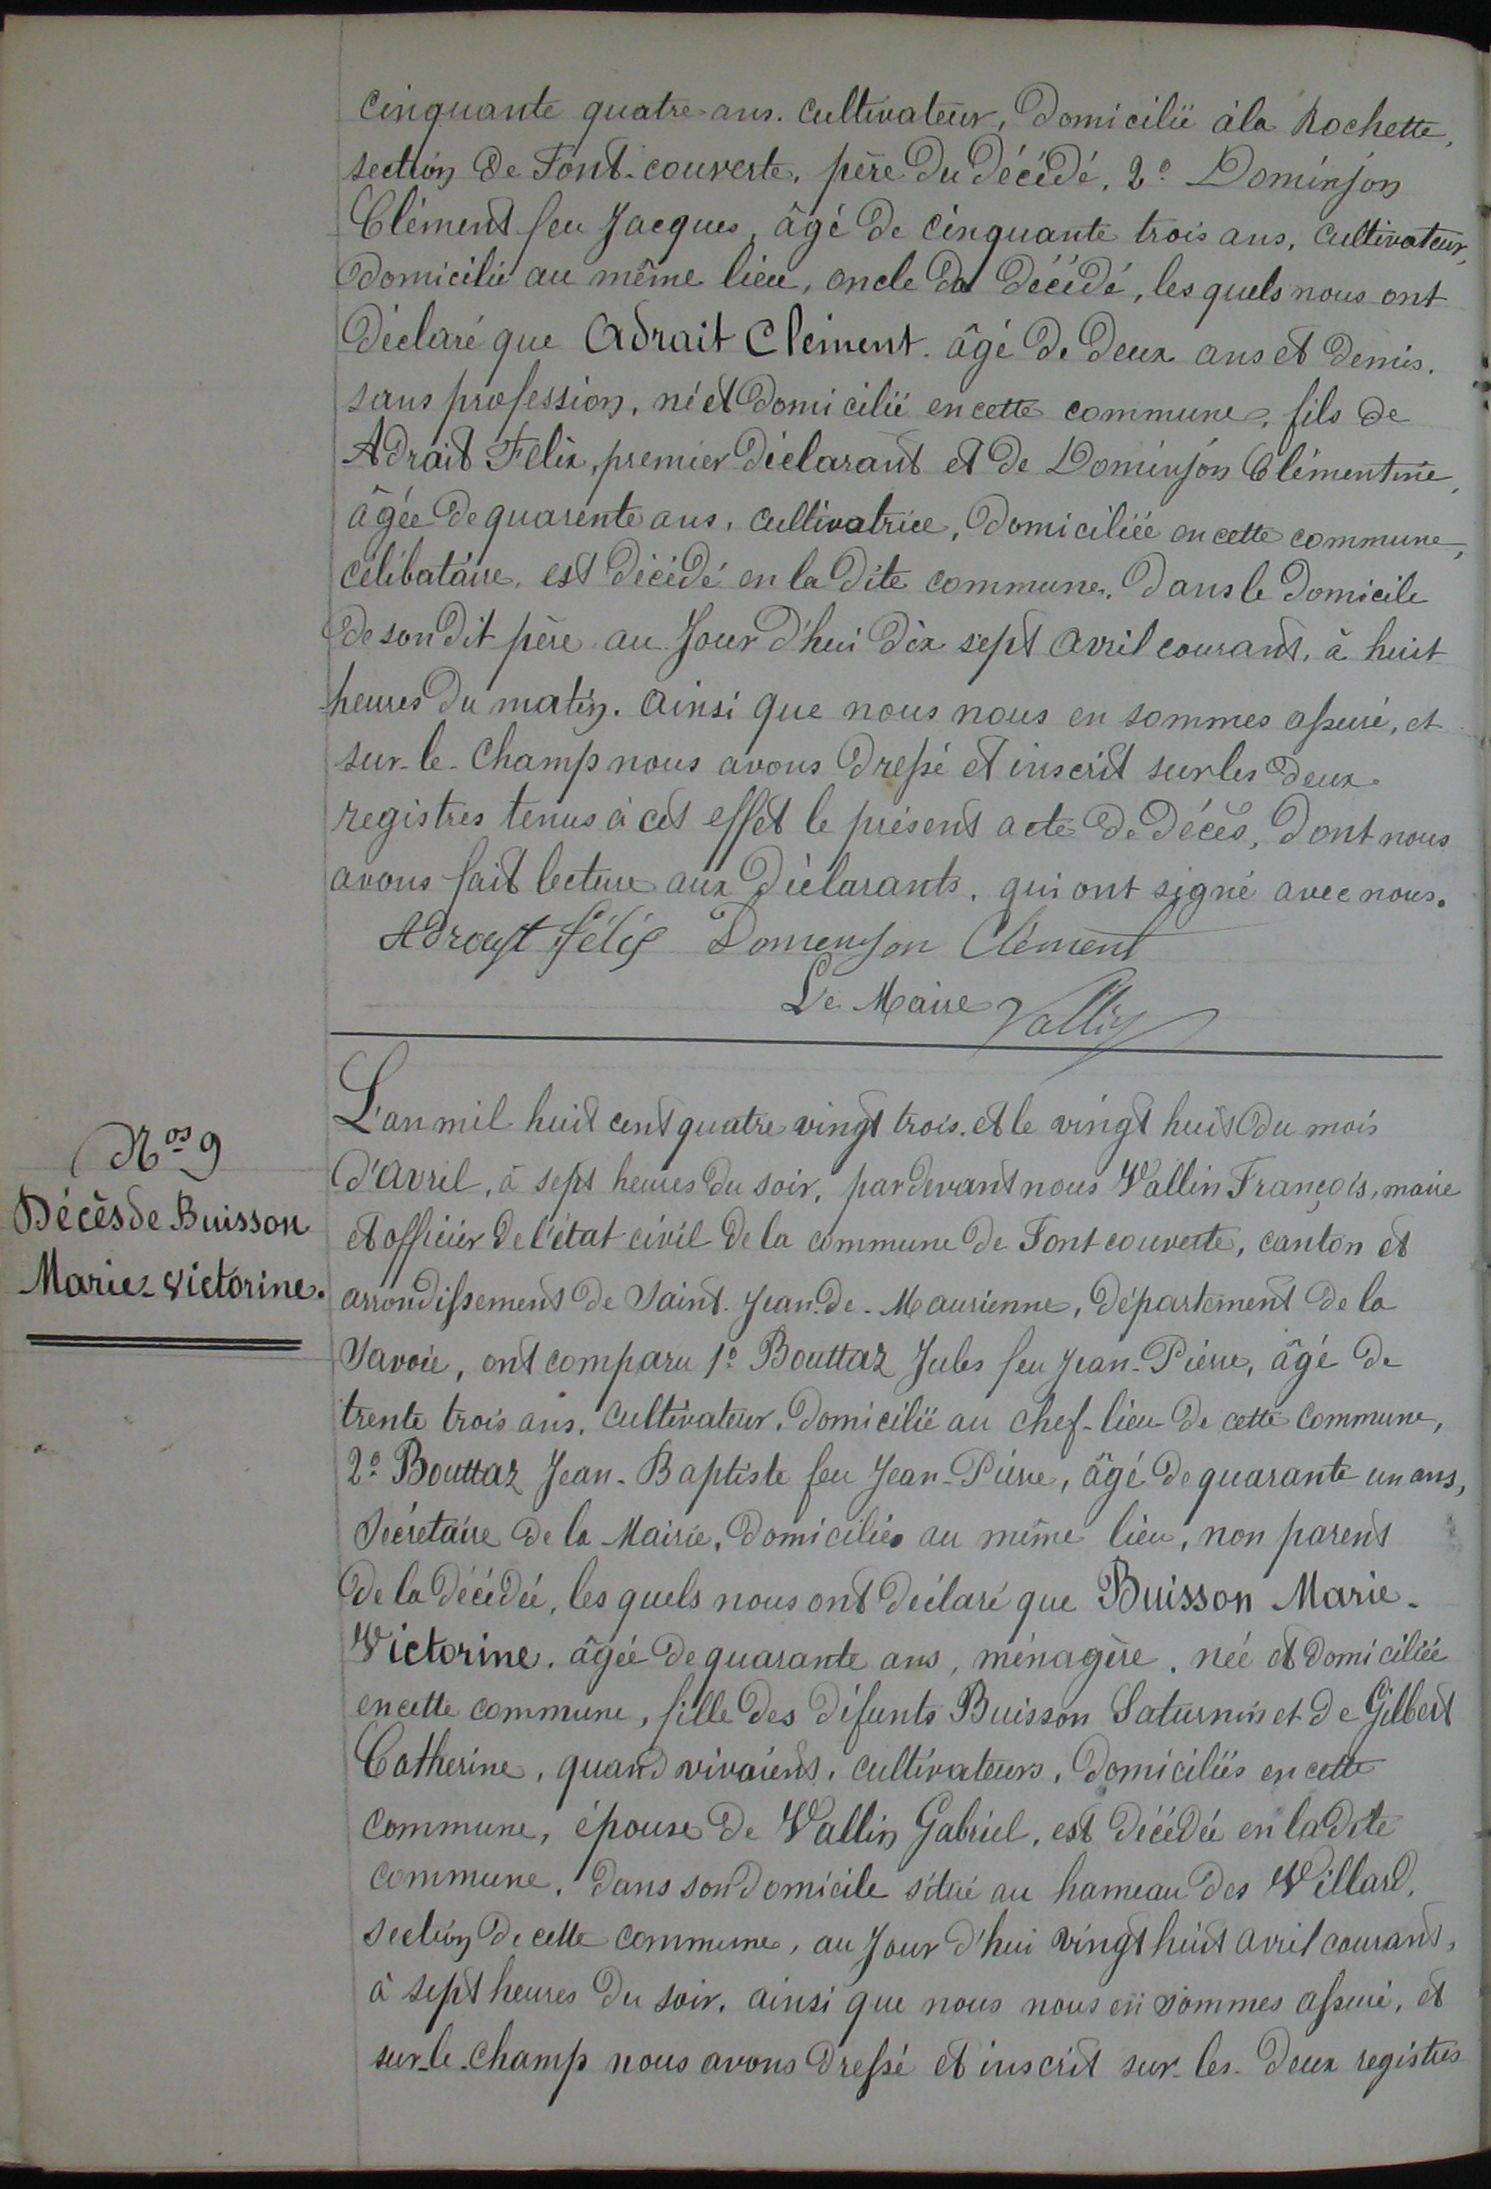 cinquante quatre ans. cultivateur, domicilié à la Rochette,
section de Font-couverte, père du décédé, 2° Dominjon
Clément feu Jacques, âgé de cinquante trois ans, cultivateur,
domicilié au même lieu, oncle du décédé, les quels nous ont
déclaré que Adrait Clément. âgé de deux ans et demis.
sans profession, né et domicilié en cette commune, fils de
Adrait Felix, premier déclarant et de Dominjon Clémentine,
âgée de quarente ans, cultivatrice, domiciliée en cette commune,
célibataire, est décédé en la dite commune, dans le domicile
de son dit père au jour d'hui dix sept avril courant, à huit
heures du matin. ainsi que nous nous en sommes assuré, et
sur-le-champ nous avons dressé et inscrit sur les deux
registres tenus à cet effet le présent acte de décès, dont nous
avons fait lecture aux déclarants, qui ont signé avec nous.
Adrayt félix Domenjon Clément
Le Maire Vallin
N.os 9
Décès de Buisson
Marie-Victorine.
L'an mil huit cent quatre vingt trois. et le vingt huit du mois
d'avril, à sept heures du soir, pardevant nous Vallin François, maire
et officier de l'état civil de la commune de Fontcouverte, canton et
arrondissement de Saint-Jean-de-Maurienne, département de la
Savoie, ont comparu 1° Bouttaz Jules feu Jean-Pierre, âgé de
trente trois ans, cultivateur, domicilié au chef-lieu de cette commune,
2° Bouttaz Jean-Baptiste feu Jean-Pierre, âgé de quarante un ans,
Secrétaire de la Mairie, domiciliés au même lieu, non parent
de la décédée, les quels nous ont déclaré que Buisson Marie-
Victorine, âgée de quarante ans, ménagère, née et domiciliée
en cette commune, fille des défunts Buisson Saturnin et de Gilbert
Catherine, quand vivaient, cultivateurs, domiciliés en cette
commune, épouse de Vallin Gabriel, est décédée en la dite
commune, dans son domicile situé au hameau des Villard,
section de cette commune, au jour d'hui vingt huit avril courant,
à sept heures du soir, ainsi que nous nous en sommes assuré, et
sur-le-champ nous avons dressé et inscrit sur-les-deux registres